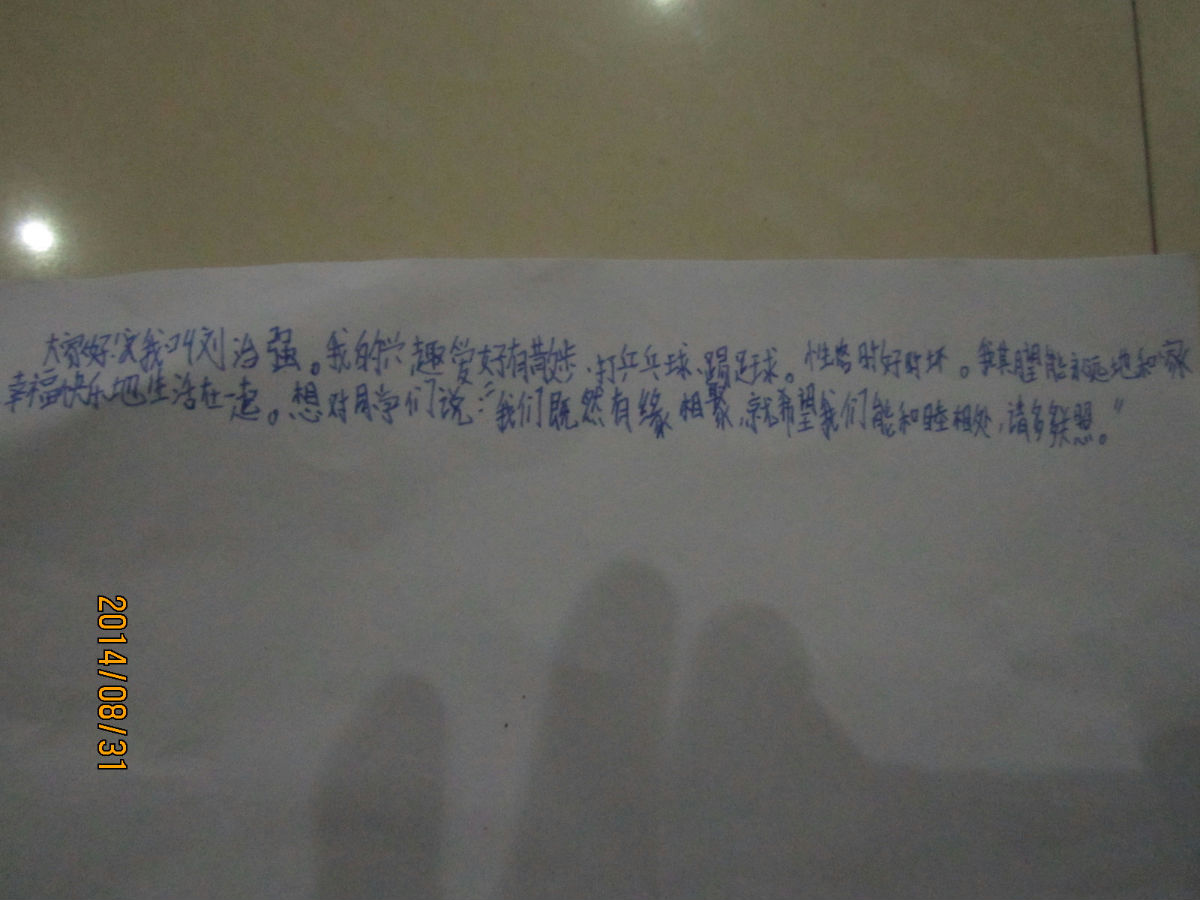 大家好！我叫刘治强。我的兴趣爱好有散步、打乒乓球、踢足球。性格时好时坏。我期望能永远地和家
幸福快乐地生活在一起。想对同学们说："我们既然有缘相聚，就希望我们能和睦相处，请多多关照。"
2014/08/31